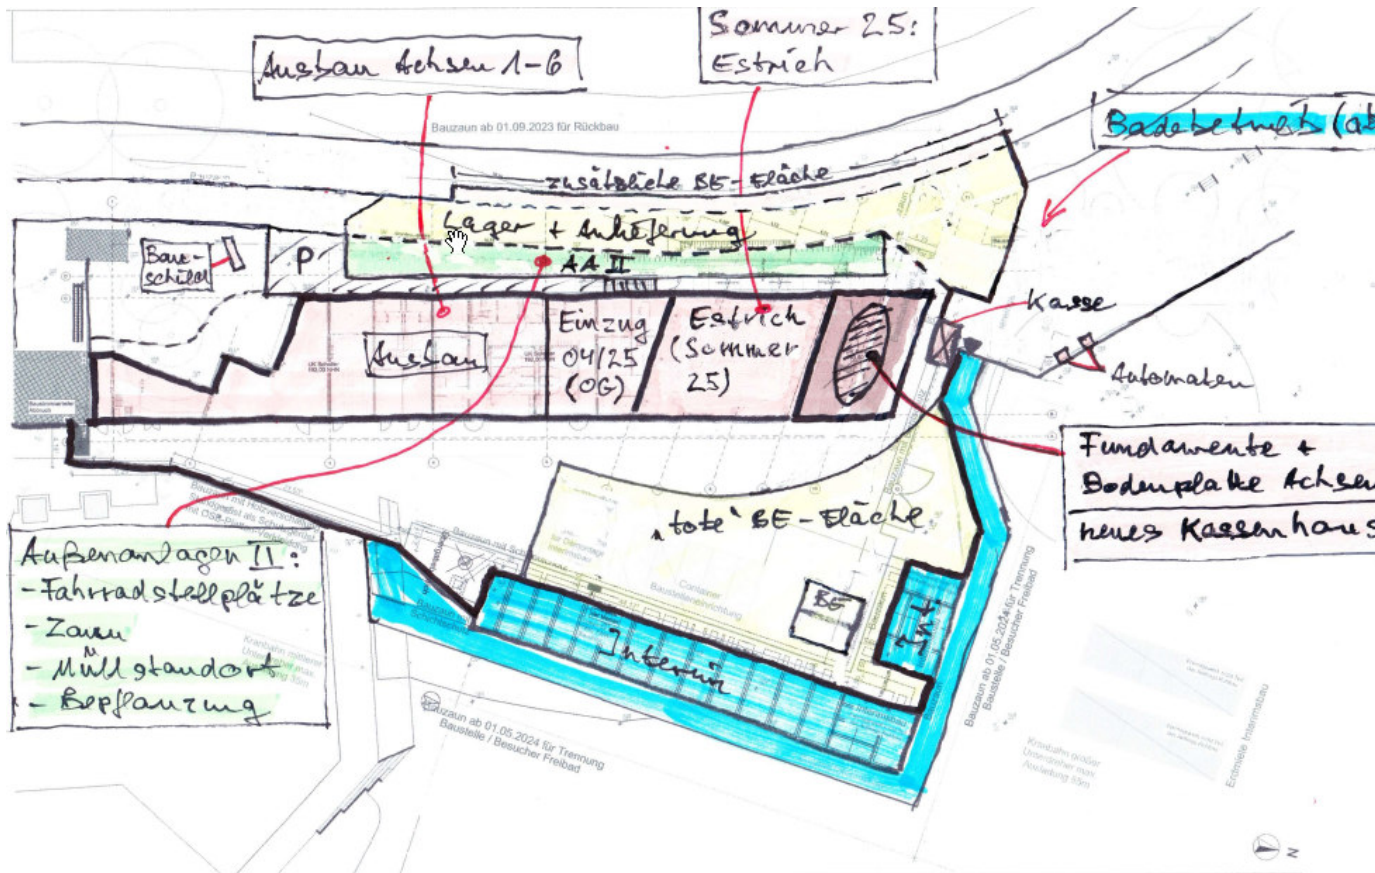 Ausbau Achsen 1-6
Sommer 25:
Estrich
Badebetrieb (ab
Bauzaun ab 01.09.2023 für Rückbau
zusätzliche BE-Fläche
Lager + Anlieferung
AA II
P
Bau-
schild
Ausbau
Einzug
04/25
(OG)
Estrich
(Sommer
25)
Kasse
Automaten
Fundamente +
Bodenplatte Achsen
neues Kassenhaus
"tote" BE-Fläche
Container
Baustelleneinrichtung
BE
Interim
Außenanlagen II:
- Fahrradstellplätze
- Zaun
- Müllstandort
- Bepflanzung
Bauzaun ab 01.05.2024 für Trennung
Baustelle / Besucher Freibad
Bauzaun ab 01.05.2024 für Trennung
Baustelle / Besucher Freibad
Kranbahn großer
Unterdreher max.
Ausladung 55m
Erdmiete Interimsbau
N